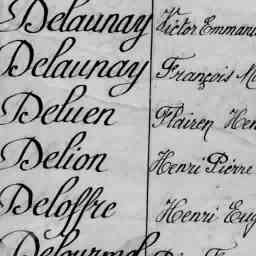 Delaunay Victor Emmanu
Delaunay François M
Deluen Flairen Hen
Delion Henri Pierre
Deloffre Henri Eug
Delourmel